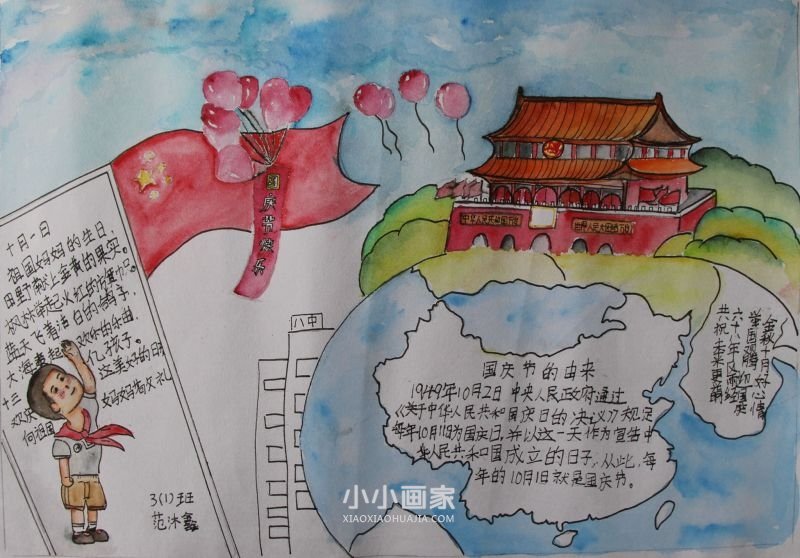 十月一日
祖国妈妈的生日,
田野献上金黄的果实。
枫林举起火红的旗帜。
蓝天飞着洁白的鸽子,
大海奏起欢乐的乐曲
十三亿孩子。
这美好的日
向祖国妈妈
礼
3(1)班
范沐鑫
国庆节快乐
中华人民共和国万岁
世界人民大团结万岁
八中
国庆节的由来
1949年10月2日中央人民政府通过
《关于中华人民共和国国庆日的决议》规定
每年10月1日为国庆日,并以这一天作为宣告中
华人民共和国成立的日子,从此,每
年的10月1日就是国庆节。
金秋十月好心情
举国观腾迎国庆
六十八年风雨经
共祝未来更
小小画家
XIAOXIAOHUAJIA.COM